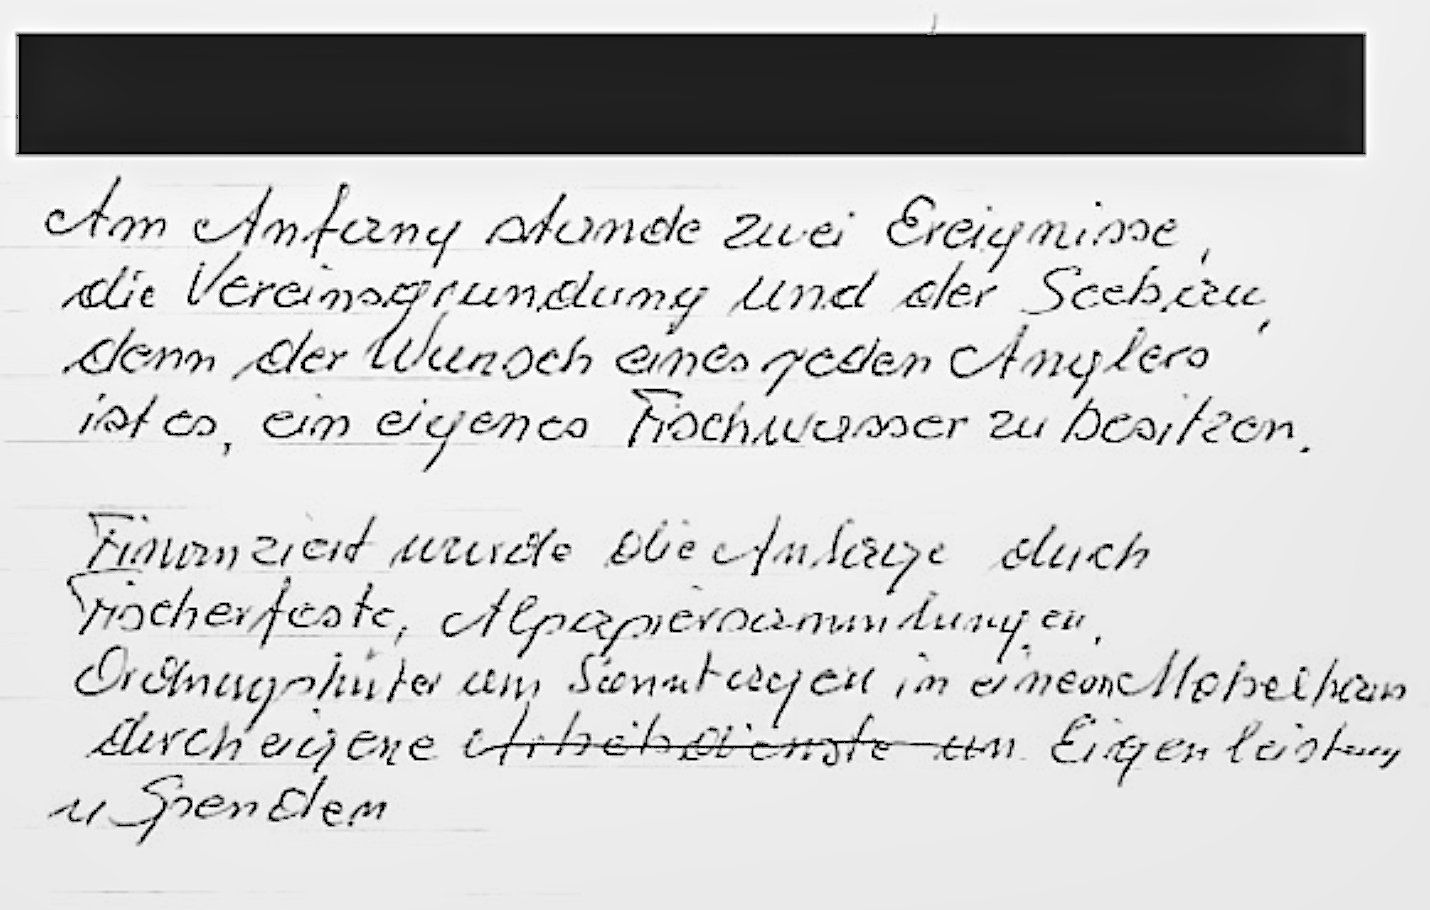 Am Anfang stande zwei Ereignisse,
die Vereinsgrundung und der Seebau,
denn der Wunsch eines jeden Anglers
ist es, ein eigenes Fischwasser zu besitzen.
Finanziert wurde die Anlage durch
Fischerfeste, Alpapiersammlungen,
Ordnugshüter am Sonntagen in einem Mobelhaus
durch eigene Arbeitsdienste un Eigenleistung
u Spenden